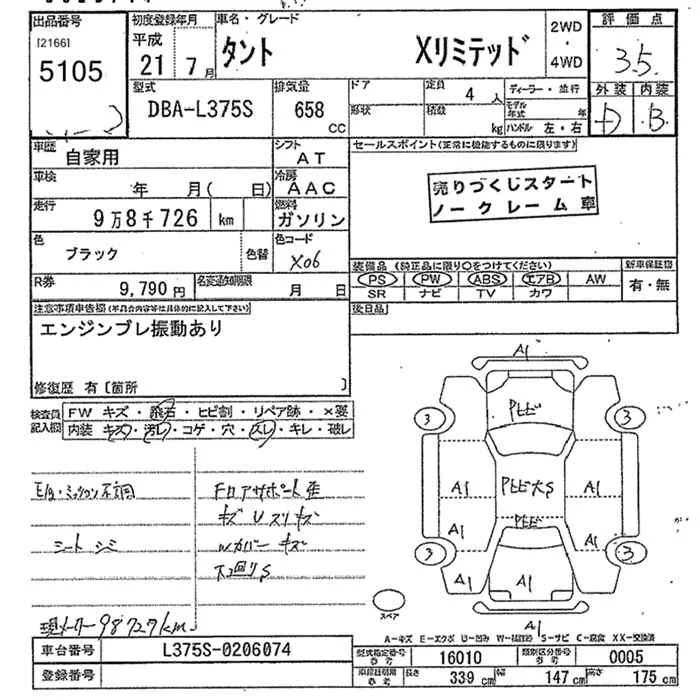 出品番号
[2166]
5105
初度登録年月
平成
21 7月
車名・グレード
タント Xリミテッド
2WD
・
4WD
評価点
3.5
外装 内装
D B
型式
DBA-L375S
排気量
658
CC
ドア
形状
定員
4 人
積載
kg
ディーラー・並行
モデル年式 年
ハンドル 左・右
車歴
自家用
シフト
AT
車検
年 月( 日)
冷房
AAC
走行
9万8千726 km
燃料
ガソリン
色
ブラック
色替
色コード
X06
R券
9,790 円
名変通知期限
月 日
セールスポイント(正常に機能するものに限ります)
売りつくしスタート
ノークレーム車
装備品 (純正品に限り○をつけてください)
PS PW ABS エアB AW
SR ナビ TV カワ
新車保証書
有・無
後日品
注意事項申告欄(不具合内容等は具体的に記入して下さい)
エンジンブレ振動あり
修復歴 有 [箇所 ]
検査員
記入欄
FW キズ・飛石・ヒビ割・リペア跡・×要
内装 キズ・汚レ・コゲ・穴・スレ・キレ・破レ
E/g・ミッション不調
シート シミ
フロアサポート歪
キズ U スリキズ
Wカバー キズ
下回りS
現メーター 98727km
A1
3
3
3
3
A1
A1
A1
A1
A1
A1
A1
A1
スペア
A-キズ E-エクボ U-凹み W-補修跡 S-サビ C-腐食 XX-交換済
車台番号
L375S-0206074
登録番号
型式指定番号
参考
16010
類別区分番号
参考
0005
長さ
339 cm
幅
147 cm
高さ
175 cm